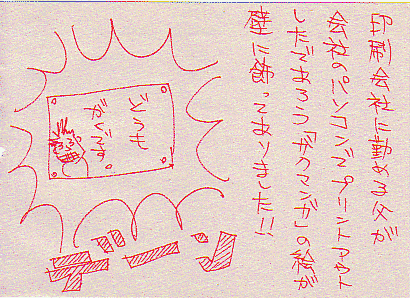 印刷会社に勤める父が
会社のパソコンでプリントアウト
したであろう「ガクマンガ」の絵が
壁に飾ってありました!!
どうも
がくです
ババーン